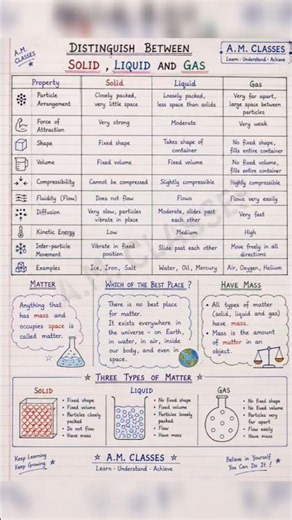 A.M. CLASSES
DISTINGUISH BETWEEN
SOLID, LIQUID AND GAS
A.M. CLASSES
Learn - Understand - Achieve
Property Solid Liquid Gas
Particle Arrangement Closely packed, very little space Loosely packed, less space than solids Very far apart, large space between particles
Force of Attraction Very strong Moderate Very weak
Shape Fixed shape Takes shape of container No fixed shape, fills entire container
Volume Fixed volume Fixed volume No fixed volume, fills entire container
Compressibility Cannot be compressed Slightly compressible Highly compressible
Fluidity (Flow) Does not flow Flows Flows very easily
Diffusion Very slow, particles vibrate in place Moderate, slides past each other Very fast
Kinetic Energy Low Medium High
Inter-particle Movement Vibrate in fixed position Slide past each other Move freely in all directions
Examples Ice, Iron, Salt Water, Oil, Mercury Air, Oxygen, Helium
A.M. CLASSES
MATTER
Anything that has mass and occupies space is called matter.
WHICH OF THE BEST PLACE?
There is no best place for matter.
It exists everywhere in the universe - on Earth, in water, in air, inside our body, and even in space.
HAVE MASS
• All types of matter (solid, liquid and gas) have mass.
• Mass is the amount of matter in an object.
THREE TYPES OF MATTER
SOLID
• Fixed shape
• Fixed volume
• Particles closely packed
• Do not flow
• Have mass
LIQUID
• No fixed shape
• Fixed volume
• Particles loosely packed
• Flow
• Have mass
GAS
• No fixed shape
• No fixed volume
• Particles very far apart
• Flow easily
• Have mass
Keep Learning
Keep Growing
A.M. CLASSES
Learn - Understand - Achieve
Believe in Yourself
You Can Do It!